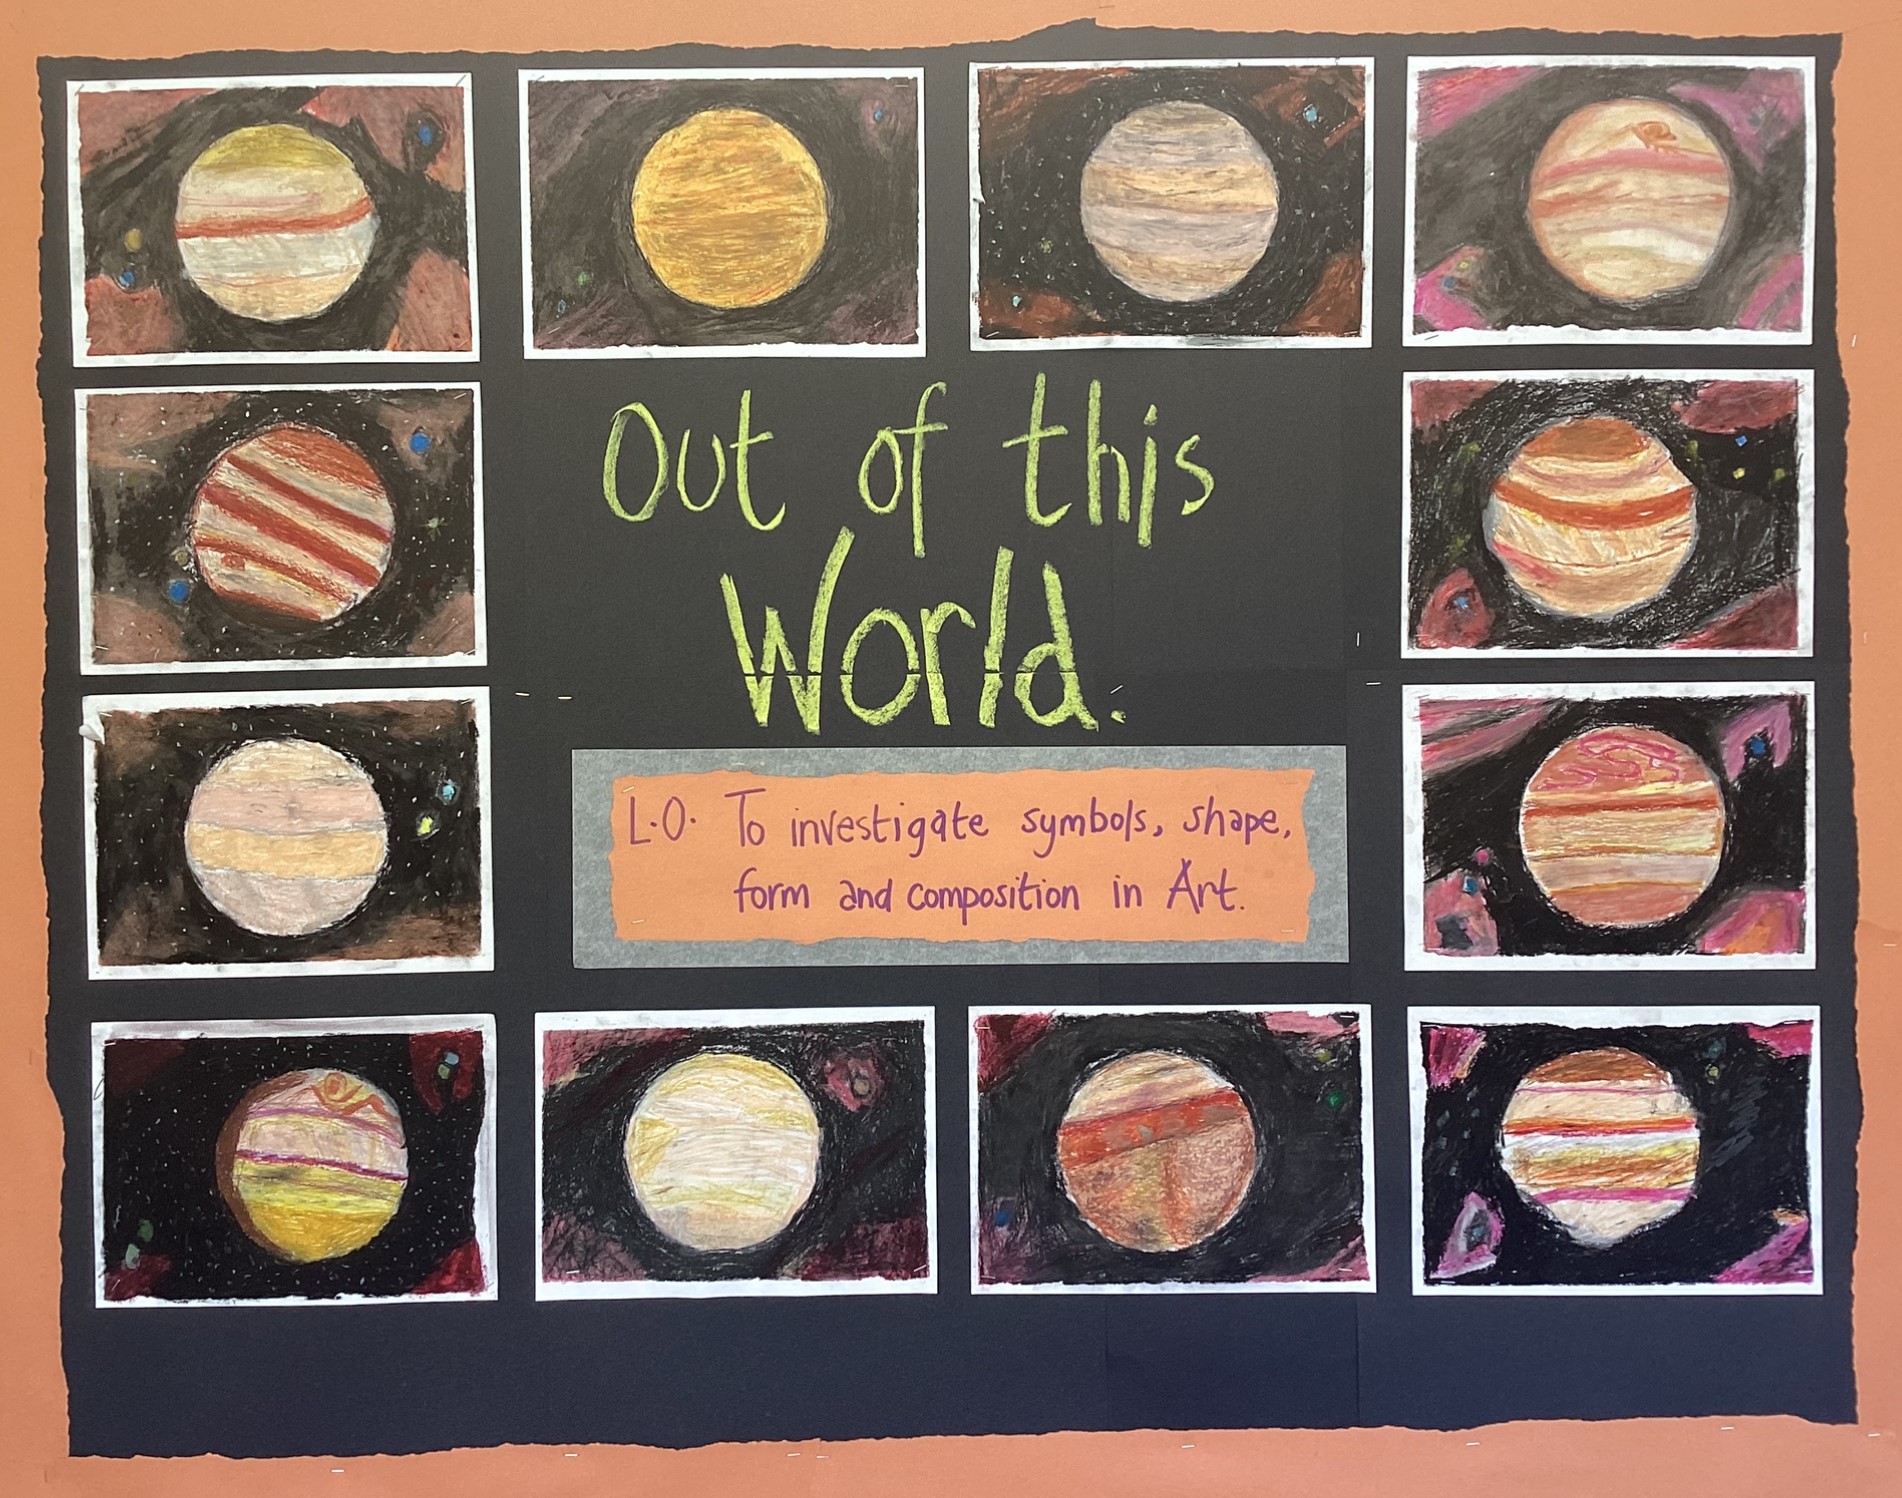 Out of this
World.
L.O. To investigate symbols, shape,
form and composition in Art.